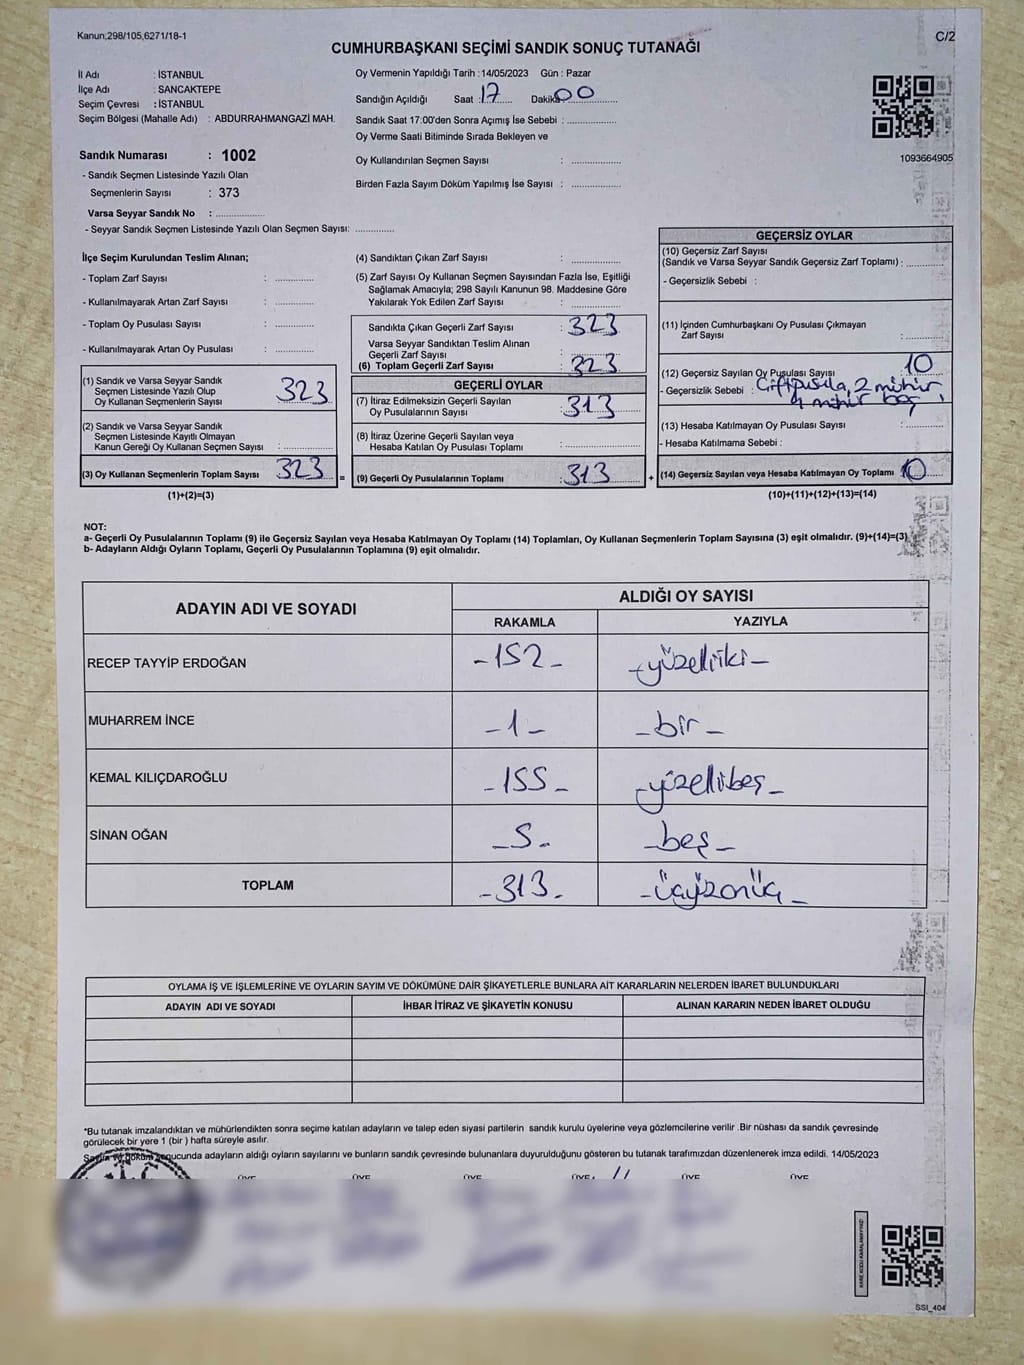 Kanun;298/105,6271/18-1
C/2
CUMHURBAŞKANI SEÇİMİ SANDIK SONUÇ TUTANAĞI
İl Adı : İSTANBUL
İlçe Adı : SANCAKTEPE
Seçim Çevresi : İSTANBUL
Seçim Bölgesi (Mahalle Adı) : ABDURRAHMANGAZİ MAH.
Sandık Numarası : 1002
- Sandık Seçmen Listesinde Yazılı Olan
Seçmenlerin Sayısı : 373
Varsa Seyyar Sandık No : ................
- Seyyar Sandık Seçmen Listesinde Yazılı Olan Seçmen Sayısı: ............
Oy Vermenin Yapıldığı Tarih : 14/05/2023 Gün : Pazar
Sandığın Açıldığı Saat : 17 Dakika 00
Sandık Saat 17:00'den Sonra Açımış İse Sebebi : ................
Oy Verme Saati Bitiminde Sırada Bekleyen ve
Oy Kullandırılan Seçmen Sayısı : ................
Birden Fazla Sayım Döküm Yapılmış İse Sayısı : ................
1093664905
İlçe Seçim Kurulundan Teslim Alınan;
- Toplam Zarf Sayısı : ............
- Kullanılmayarak Artan Zarf Sayısı : ............
- Toplam Oy Pusulası Sayısı : ............
- Kullanılmayarak Artan Oy Pusulası : ............
(1) Sandık ve Varsa Seyyar Sandık
Seçmen Listesinde Yazılı Olup
Oy Kullanan Seçmenlerin Sayısı : 323
(2) Sandık ve Varsa Seyyar Sandık
Seçmen Listesinde Kayıtlı Olmayan
Kanun Gereği Oy Kullanan Seçmen Sayısı : ................
(3) Oy Kullanan Seçmenlerin Toplam Sayısı : 323
(1)+(2)=(3)
(4) Sandıktan Çıkan Zarf Sayısı : ................
(5) Zarf Sayısı Oy Kullanan Seçmen Sayısından Fazla İse, Eşitliği
Sağlamak Amacıyla; 298 Sayılı Kanunun 98. Maddesine Göre
Yakılarak Yok Edilen Zarf Sayısı : ................
Sandıkta Çıkan Geçerli Zarf Sayısı : 323
Varsa Seyyar Sandıktan Teslim Alınan
Geçerli Zarf Sayısı : ................
(6) Toplam Geçerli Zarf Sayısı : 323
GEÇERLİ OYLAR
(7) İtiraz Edilmeksizin Geçerli Sayılan
Oy Pusulalarının Sayısı : 313
(8) İtiraz Üzerine Geçerli Sayılan veya
Hesaba Katılan Oy Pusulası Toplamı : ................
= (9) Geçerli Oy Pusulalarının Toplamı : 313 +
GEÇERSİZ OYLAR
(10) Geçersiz Zarf Sayısı
(Sandık ve Varsa Seyyar Sandık Geçersiz Zarf Toplamı) : ............
- Geçersizlik Sebebi :
(11) İçinden Cumhurbaşkanı Oy Pusulası Çıkmayan
Zarf Sayısı : ............
(12) Geçersiz Sayılan Oy Pusulası Sayısı 10
- Geçersizlik Sebebi : Çift pusula, 2 mühür
mühür boş
(13) Hesaba Katılmayan Oy Pusulası Sayısı : ............
- Hesaba Katılmama Sebebi :
(14) Geçersiz Sayılan veya Hesaba Katılmayan Oy Toplamı 10
(10)+(11)+(12)+(13)=(14)
NOT:
a- Geçerli Oy Pusulalarının Toplamı (9) ile Geçersiz Sayılan veya Hesaba Katılmayan Oy Toplamı (14) Toplamları, Oy Kullanan Seçmenlerin Toplam Sayısına (3) eşit olmalıdır. (9)+(14)=(3)
b- Adayların Aldığı Oyların Toplamı, Geçerli Oy Pusulalarının Toplamına (9) eşit olmalıdır.
ADAYIN ADI VE SOYADI
ALDIĞI OY SAYISI
RAKAMLA YAZIYLA
RECEP TAYYİP ERDOĞAN -152- -yüzelliiki-
MUHARREM İNCE -1- -bir-
KEMAL KILIÇDAROĞLU -155- -yüzellibeş-
SİNAN OĞAN -5- -beş-
TOPLAM -313- -üçyüzonüç-
OYLAMA İŞ VE İŞLEMLERİNE VE OYLARIN SAYIM VE DÖKÜMÜNE DAİR ŞİKAYETLERLE BUNLARA AİT KARARLARIN NELERDEN İBARET BULUNDUKLARI
ADAYIN ADI VE SOYADI İHBAR İTİRAZ VE ŞİKAYETİN KONUSU ALINAN KARARIN NEDEN İBARET OLDUĞU
*Bu tutanak imzalandıktan ve mühürlendikten sonra seçime katılan adayların ve talep eden siyasi partilerin sandık kurulu üyelerine veya gözlemcilerine verilir .Bir nüshası da sandık çevresinde
görülecek bir yere 1 (bir ) hafta süreyle asılır.
Sayım ve döküm sonucunda adayların aldığı oyların sayılarını ve bunların sandık çevresinde bulunanlara duyurulduğunu gösteren bu tutanak tarafımızdan düzenlenerek imza edildi. 14/05/2023
ÜYE ÜYE ÜYE ÜYE ÜYE ÜYE
KARE KODU KARALAMAYINIZ!
SSI_404